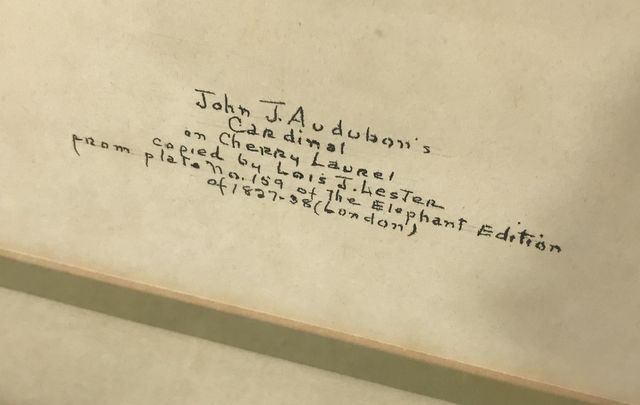 John J. Audubon's
Cardinal
on Cherry Laurel
copied by Lois J. Lester
from plate No. 159 of the Elephant Edition
of 1827-38 (London)